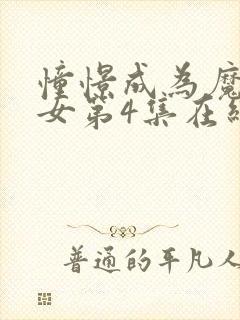 憧憬成为魔
女第4集在线
普通的平凡人